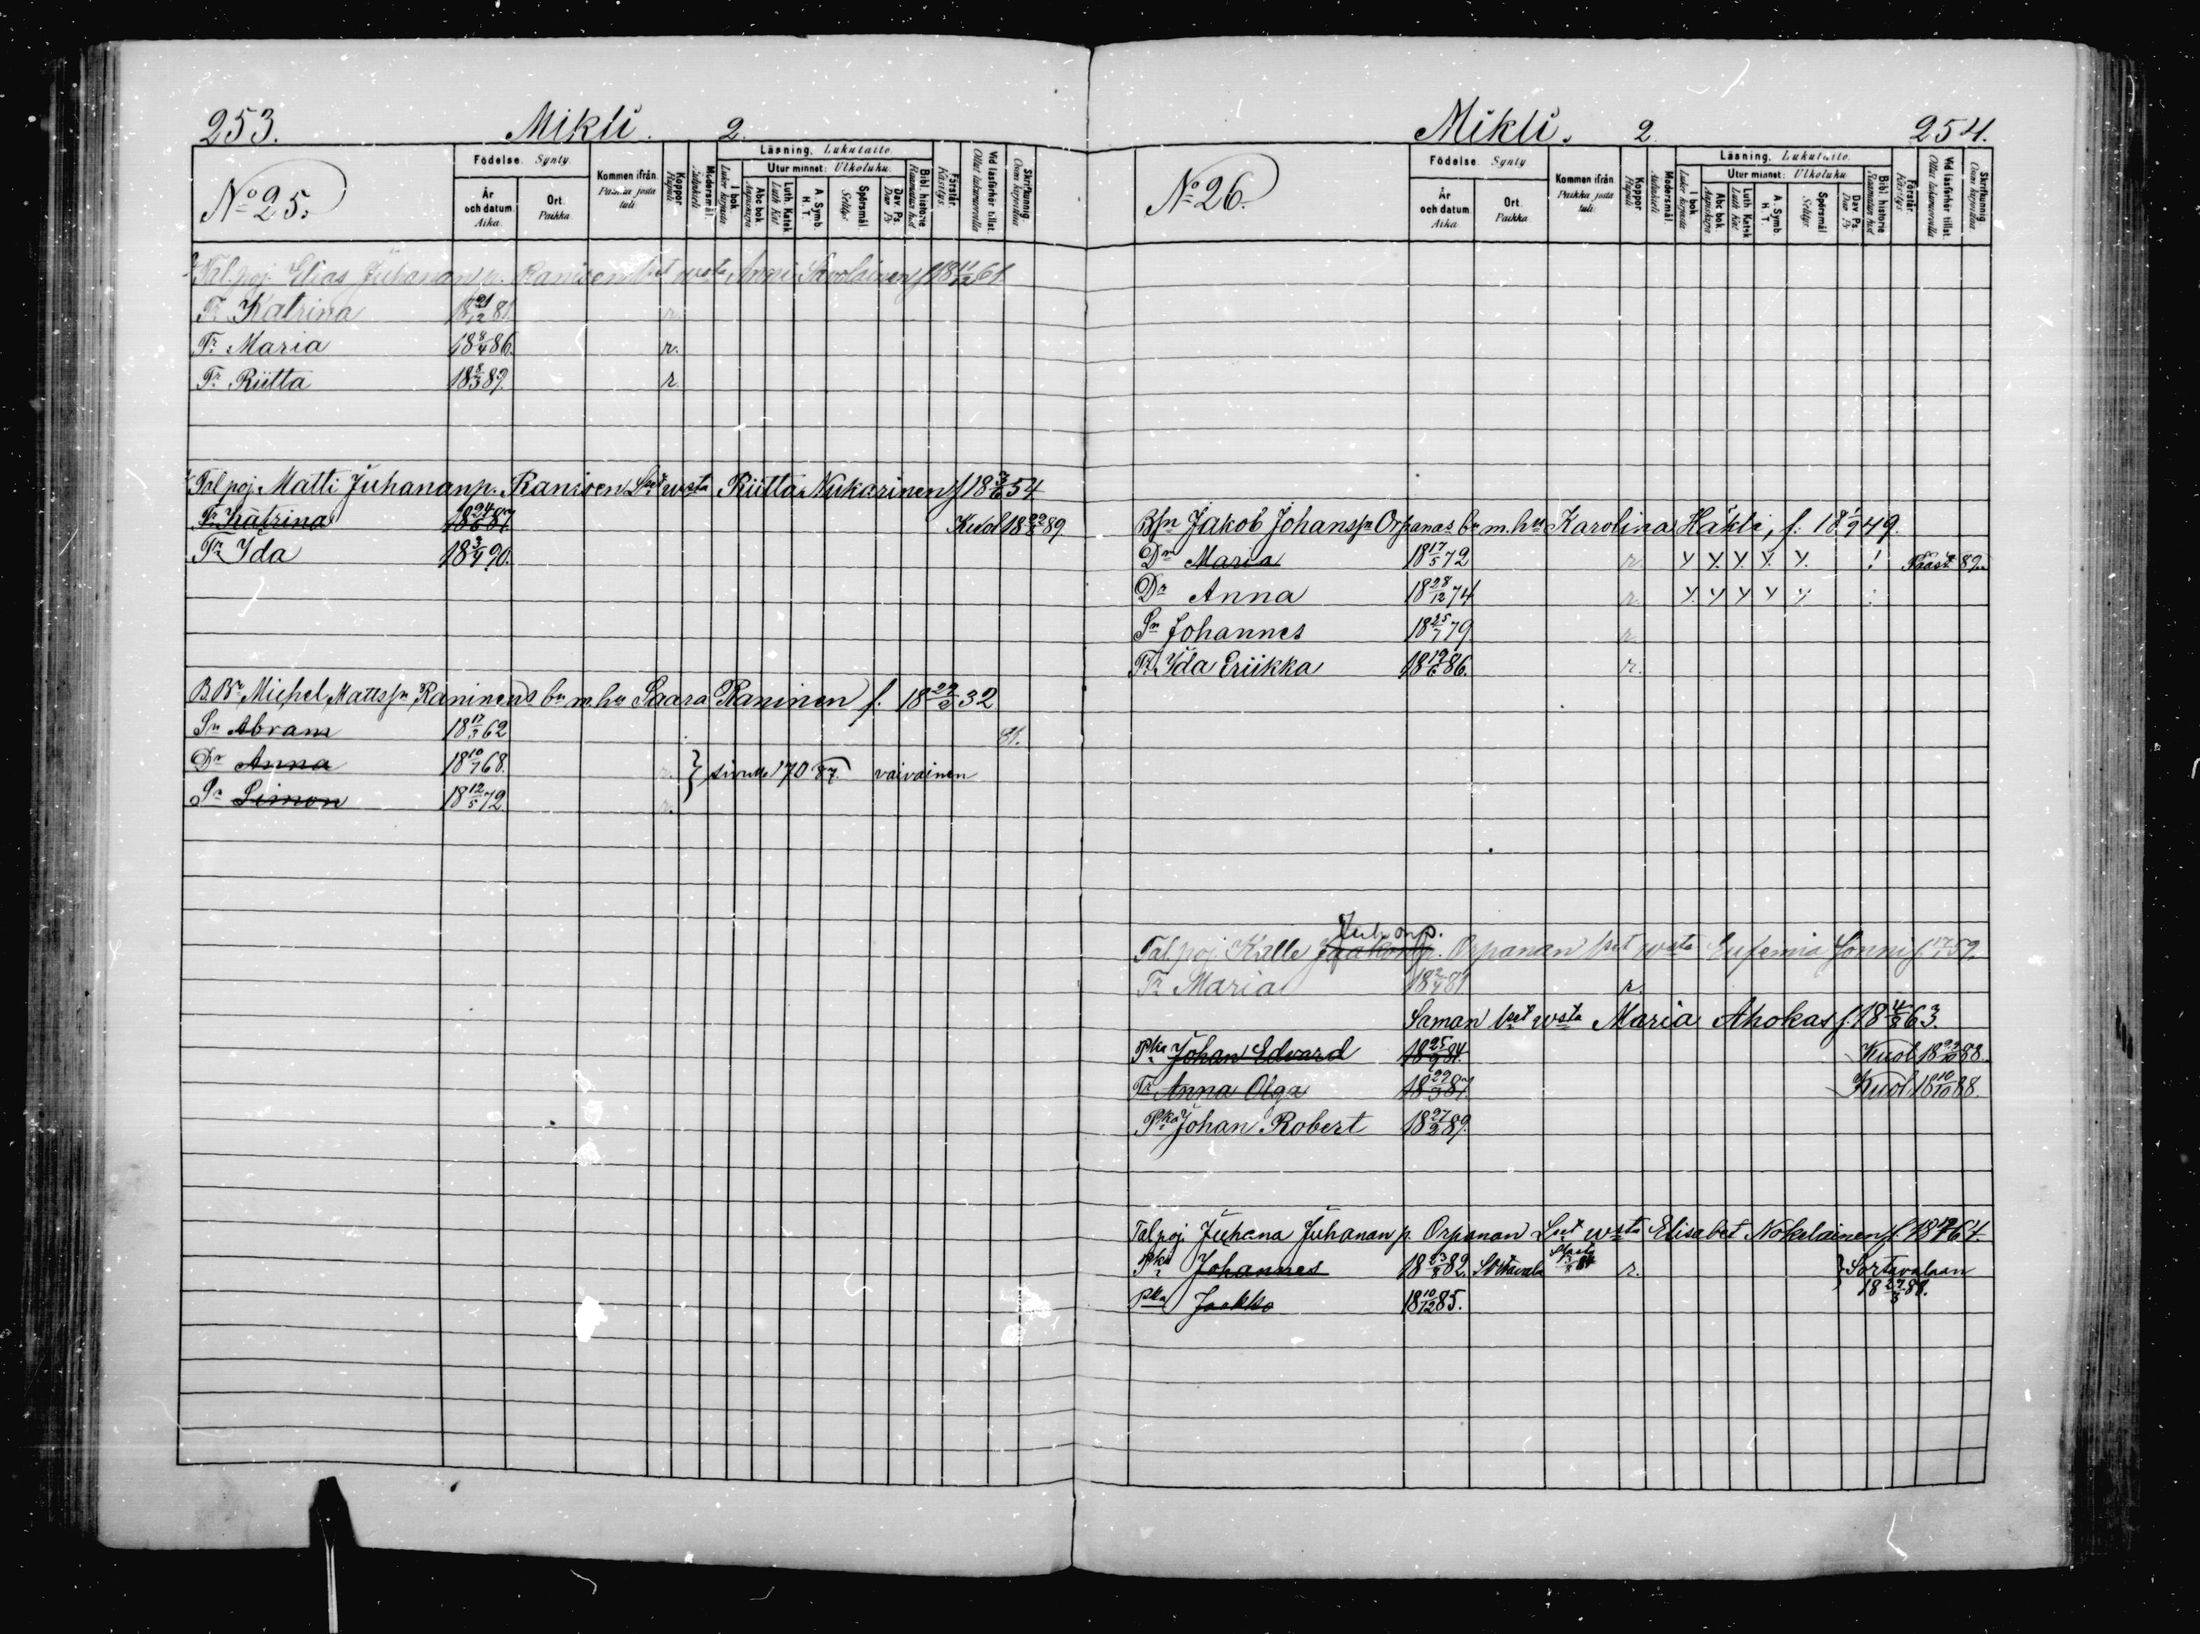 253. Mikli. 2.
No 25.
Födelse. Synty.
År och datum. Aika.
Ort. Paikka.
Kommen ifrån. Paikka josta tuli.
Koppor Rupuli
Modersmål.
Läsning. Lukutaito.
I bok.
Utur minnet: Ulkoluku
Abc bok.
Luth. Katek
A. Symb. H. T.
Spörsmål
Dav. Ps.
Bibl. historie
Förstår. Käsitys.
Vid läsförhör tillst.
Skriftkunnig.
Tal poj. Elias Juhanan p. Ranisen lset wsta Anni Savolainen f 18 11/12 61
Tr Katrina 18 21/12 81. r.
Tr Maria 18 8/4 86. r.
Tr Riitta 18 8/3 89. r
Tal poj. Matti Juhanan p. Ranisen Lset wsta Riitta Nukarinen f 18 3/6 54
Tr Katrina 18 24/6 87. Kuol 18 22/8 89.
Tr Ida 18 3/4 90.
B. Br Michel Mattssn Raninens bn m. hu Saara Raninen f. 18 22/2 32
Sn Abram 18 17/3 62 81.
Dr Anna 18 10/7 68. r. } sivulle 170 87. vaivainen
Sn Simon 18 12/5 72. r.
Mikli. 2 254.
No 26.
Födelse. Synty
År och datum. Aika
Ort. Paikka.
Kommen ifrån. Paikka josta tuli.
Koppor Rupuli
Modersmål.
Läsning. Lukutaito.
I bok.
Utur minnet: Ulkoluku
Abc bok.
Luth. Katek
A. Symb. H. T.
Spörsmål
Dav. Ps.
Bibl. historie
Förstår. Käsitys.
Vid läsförhör tillst.
Skriftkunnig.
Bsn Jakob Johanssn Orpanas bn m. hu Karolina Häkli, f. 18 1/9 49.
Dr Maria 18 17/5 72 r. Pääst 89.
Dr Anna 18 28/12 74 r.
Sn Johannes 18 25/7 79. r.
Tr Ida Eriikka 18 19/6 86. r.
Juh. onp.
Tal. poj. Kalle Jaakon p. Orpanan lset wsta Eufemia Sonni f. 17/1 59.
Tr Maria 18 2/4 81 r.
Saman lset wsta Maria Ahokas f. 18 4/8 63.
Pka Johan Edvard 18 25/6 84. Kuol 18 22/10 88.
Tr Anna Olga 18 29/3 87. Kuol 18 10/10 88.
Pka Johan Robert 18 27/3 89.
Tal poj. Juhana Juhanan p. Orpanan Lset wsta Elisabet Nokelainen f. 64.
Pka Johannes 18 23/8 82. Sortavala r. } Sortavalaan
Pka Jaakko 18 10/12 85. 18 27/3 88.